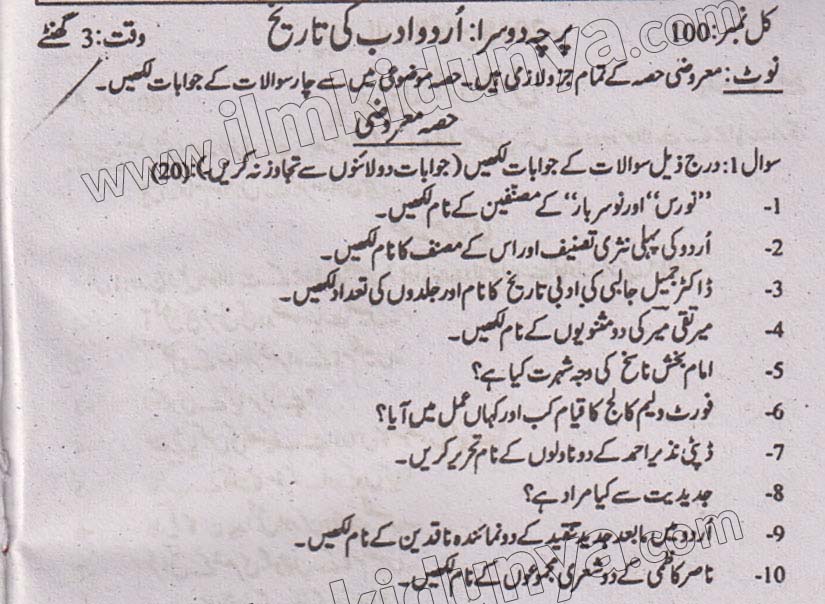 کل نمبر: 100 پرچہ دوسرا: اُردو ادب کی تاریخ وقت: 3 گھنٹے
نوٹ: معروضی حصہ کے تمام جزو لازمی ہیں۔ حصہ موضوعی میں سے چار سوالات کے جوابات لکھیں۔
حصہ معروضی
سوال 1: درج ذیل سوالات کے جوابات لکھیں (جوابات دو لائنوں سے تجاوز نہ کریں۔): (20)
1- ’’نورس‘‘ اور نوسرہار‘‘ کے مصنّفین کے نام لکھیں۔
2- اُردو کی پہلی نثری تصنیف اور اس کے مصنف کا نام لکھیں۔
3- ڈاکٹر جمیل جالبی کی ادبی تاریخ کا نام اور جلدوں کی تعداد لکھیں۔
4- میر تقی میرؔ کی دو مثنویوں کے نام لکھیں۔
5- امام بخش ناسخ کی وجہ شہرت کیا ہے؟
6- فورٹ ولیم کالج کا قیام کب اور کہاں عمل میں آیا؟
7- ڈپٹی نذیر احمد کے دو ناولوں کے نام تحریر کریں۔
8- جدیدیت سے کیا مراد ہے؟
9- اُردو میں مابعد جدید تنقید کے دو نمائندہ ناقدین کے نام لکھیں۔
10- ناصر کاظمی کے دو شعری مجموعوں کے نام لکھیں۔
www.ilmkidunya.com